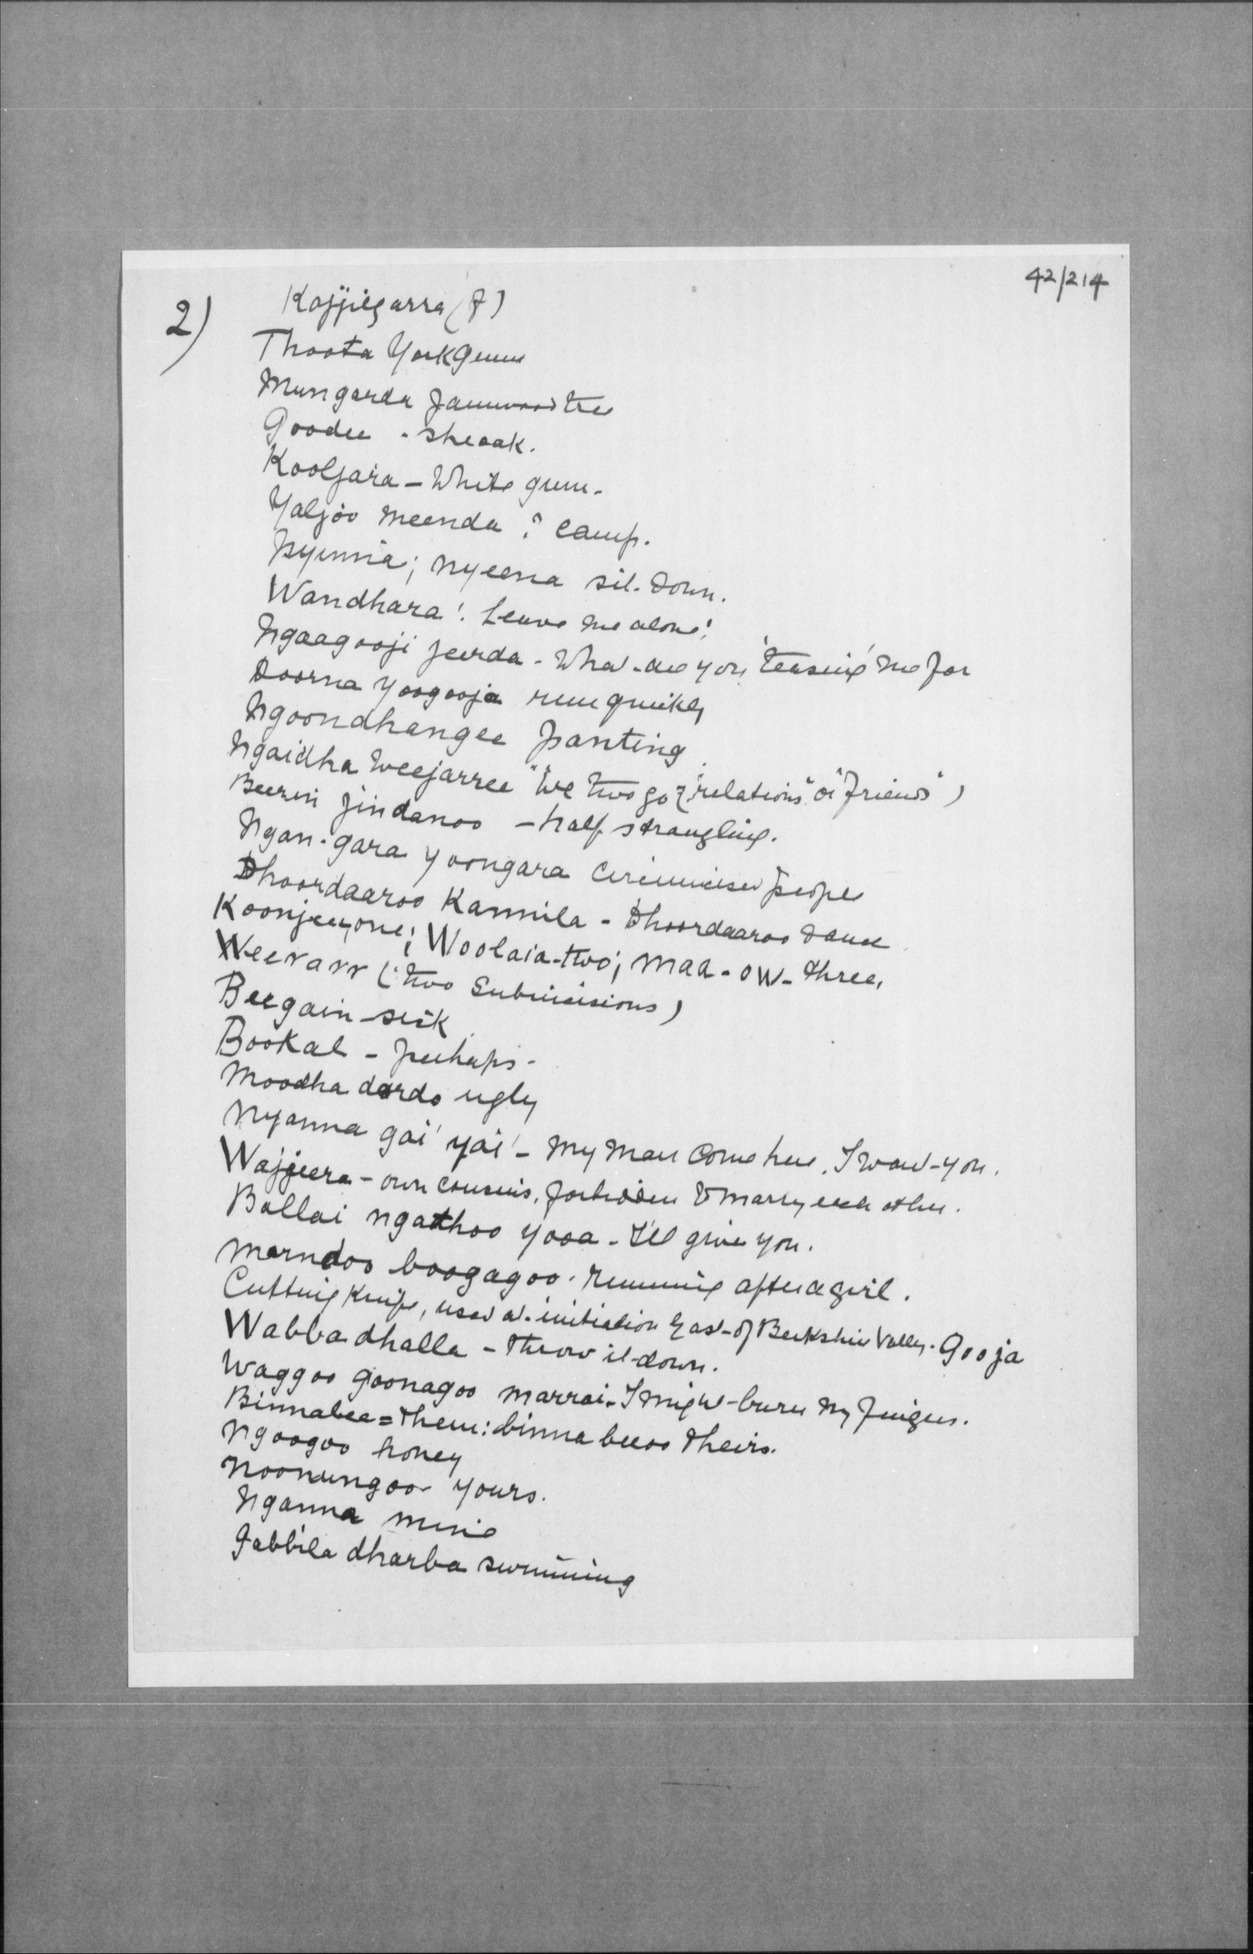 42/214
2)
Kajjilgarra (F)
Thoota York Gum
Mungarda Jamwood tree
Goodee - sheoak.
Kooljara - White gum.
Yaljoo meenda? camp.
Nyinnia; nyeena sit down.
Wandhara! Leave me alone!
Ngaagooji jeerda - What are you 'teasing' me for
Doorna yoogooja run quickly
Ngoondhangee panting
Ngaidha weejarree "We two go" ("relations" or "friends")
Beerin jindanoo - half strangling.
Ngan-gara yoongara circumcised people
Dhoordaaroo Kannila - Dhoordaaroo dance
Koonjee, one; Woolaia - two; maa-ow - three,
Weerarr (two subincisions)
Beegain sick
Bookal - perhaps -
Moodha dardo ugly
Nyanna gai' yai' - My man come here, I want you.
Wajjeera - own cousins, forbidden to marry each other.
Ballai ngathoo yooa - I'll give you.
Marndoo boogagoo - running after a girl.
Cutting knife, used at initiation East of Berkshire Valley - Gooja
Wabba dhalla - throw it down.
Waggoo goonagoo marrai - I might burn my fingers.
Binnabee = them: binna beeoo theirs.
Ngoogoo honey
Noonungoo yours.
Nganna mine
Gabbila dharba swimming